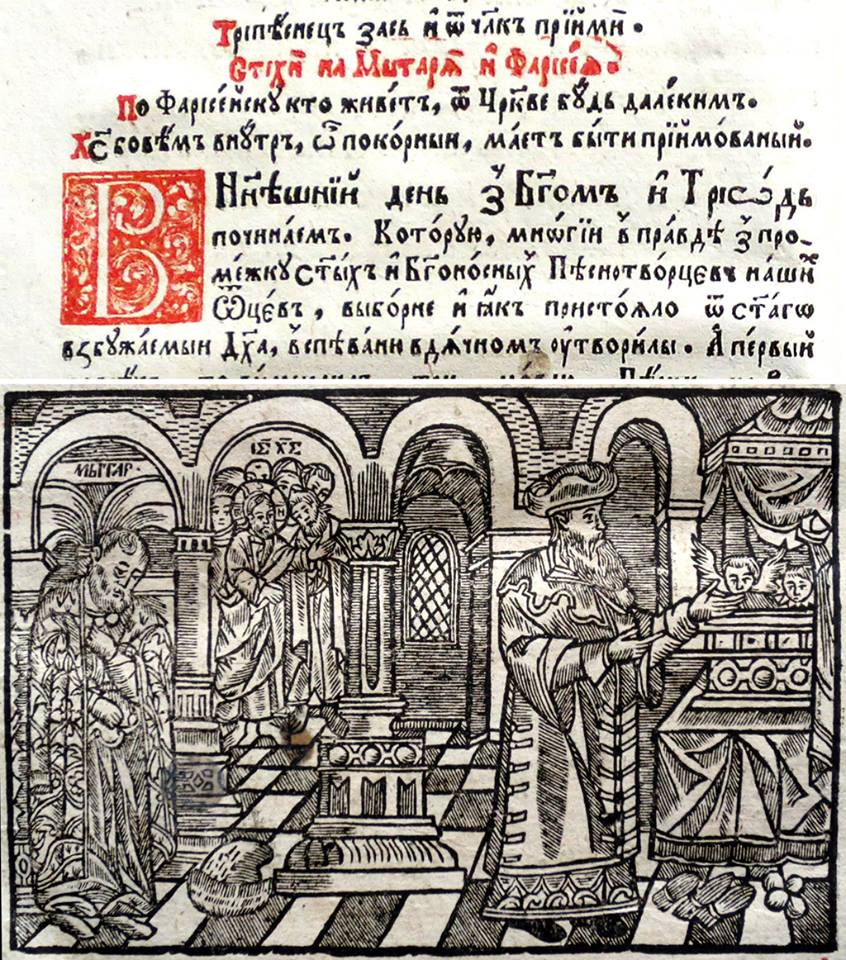 Трипѣснецъ зась и҆ ѿ чл҃кк прїими̂ .
Стїхѝ на Мытарѧ̀ и҆ Фарїсеѧ
По Фарїсейску кто живе́тъ, ѿ Цр҃кве бу́дь дале́кимъ.
Хс҃ бовѣ́мъ внꙋ́тръ, ѽ поко́рныи, ма́етъ бы́ти прїймо́ваный.
В Ннѣшнїй день з̾ Бг҃омъ и҆ Трїѡ́дь
почина́емъ. Кото́рую, мно́гїи в̾ пра́вдѣ з̾ про-
ме́жку Ст҃ы́хъ и҆ Бг҃оно́сныхъ Пѣснотво́рцевъ на́ши́х
Ѿце́въ, выбо́рне и҆ ꙗ҆́къ присто́яло ѿ ст҃а́гѡ
взбужа́емыи Дх҃а, в̾спѣва́ни вдя́чномъ оу҆твори́лы. А҆ пе́рвый
МЫТАР
ІС ХС